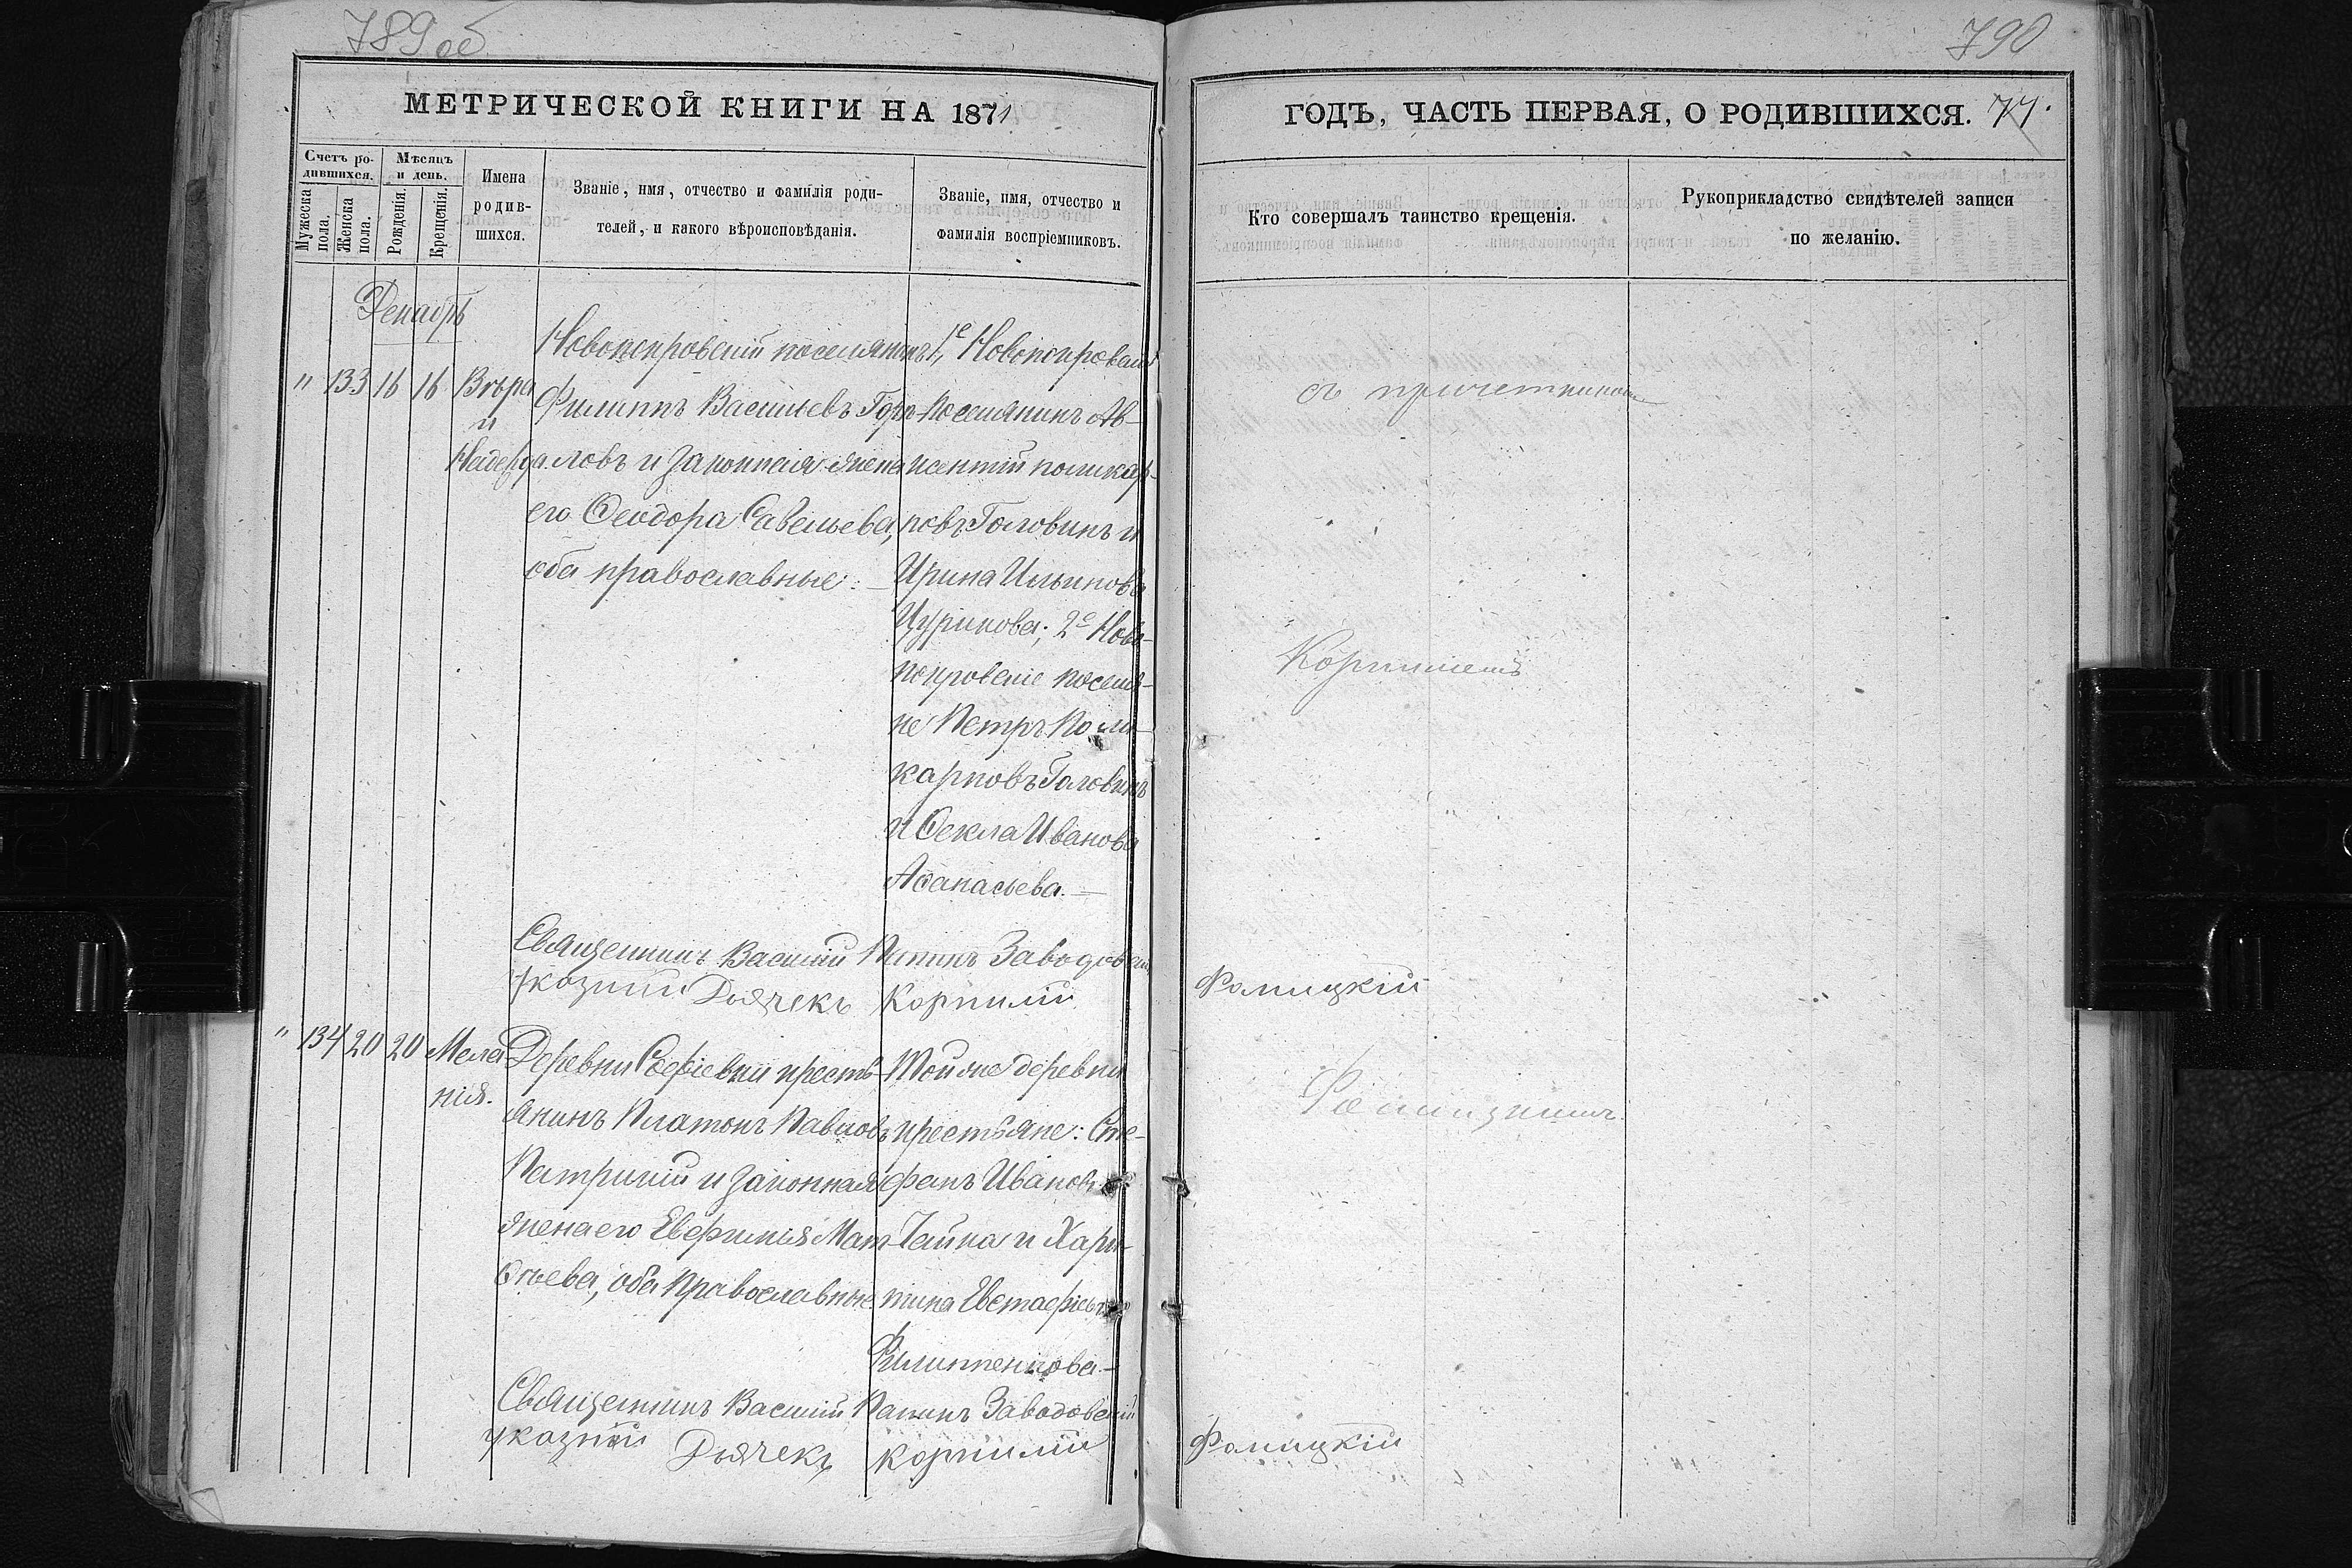 789 об
МЕТРИЧЕСКОЙ КНИГИ НА 1871
Счетъ ро-
дившихся.
Мужеска
пола.
Женска
пола.
Мѣсяцъ
и день.
Рожденія.
Крещенія.
Имена
родив-
шихся.
Званіе, имя, отчество и фамилія роди-
телей, и какого вѣроисповѣданія.
Званіе, имя, отчество и
фамилія воспріемниковъ.
Декабрь
" 133 16 16 Вѣра
и
Надежда.
Новопокровскій поселянинъ
Филиппъ Васильевъ
ловъ и законная жена
его Ѳеодора Савельева,
оба православные.
1е Новопокровскій
Поселянинъ Ав-
ксентій Поликар-
повъ Головинъ и
Ирина Ильинова
Цурикова; 2е Ново-
покровскіе поселя-
не Петръ Поли-
карповъ Головинъ
и Ѳекла Иванова
Аѳанасьева.
Священникъ Василій Заводовскій
указный Дьячекъ Корнилій
" 134 20 20 Мела
нія.
Деревни Софіевки кресть-
янинъ Платонъ Павловъ
Патрикій и законная
жена его Евфимія Мат-
ѳѣева, оба Православные
Той же деревни
крестьяне: Сте-
фанъ Ивановъ
Гайка и Хари-
тина Евстафіева
Филиппенкова
Священникъ Василій Заводовскій
указный Дьячекъ Корнилій
790
ГОДЪ, ЧАСТЬ ПЕРВАЯ, О РОДИВШИХСЯ. 77.
Кто совершалъ таинство крещенія.
Рукоприкладство свидѣтелей записи
по желанію.
съ причетникомъ
Корниліемъ
Фомицкій
Фомицкимъ.
Фомицкій